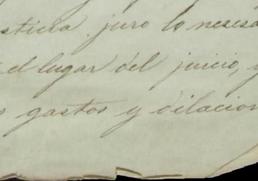 sticia juro lo necesa
el lugar del juicio, y
s gastos y dilacion